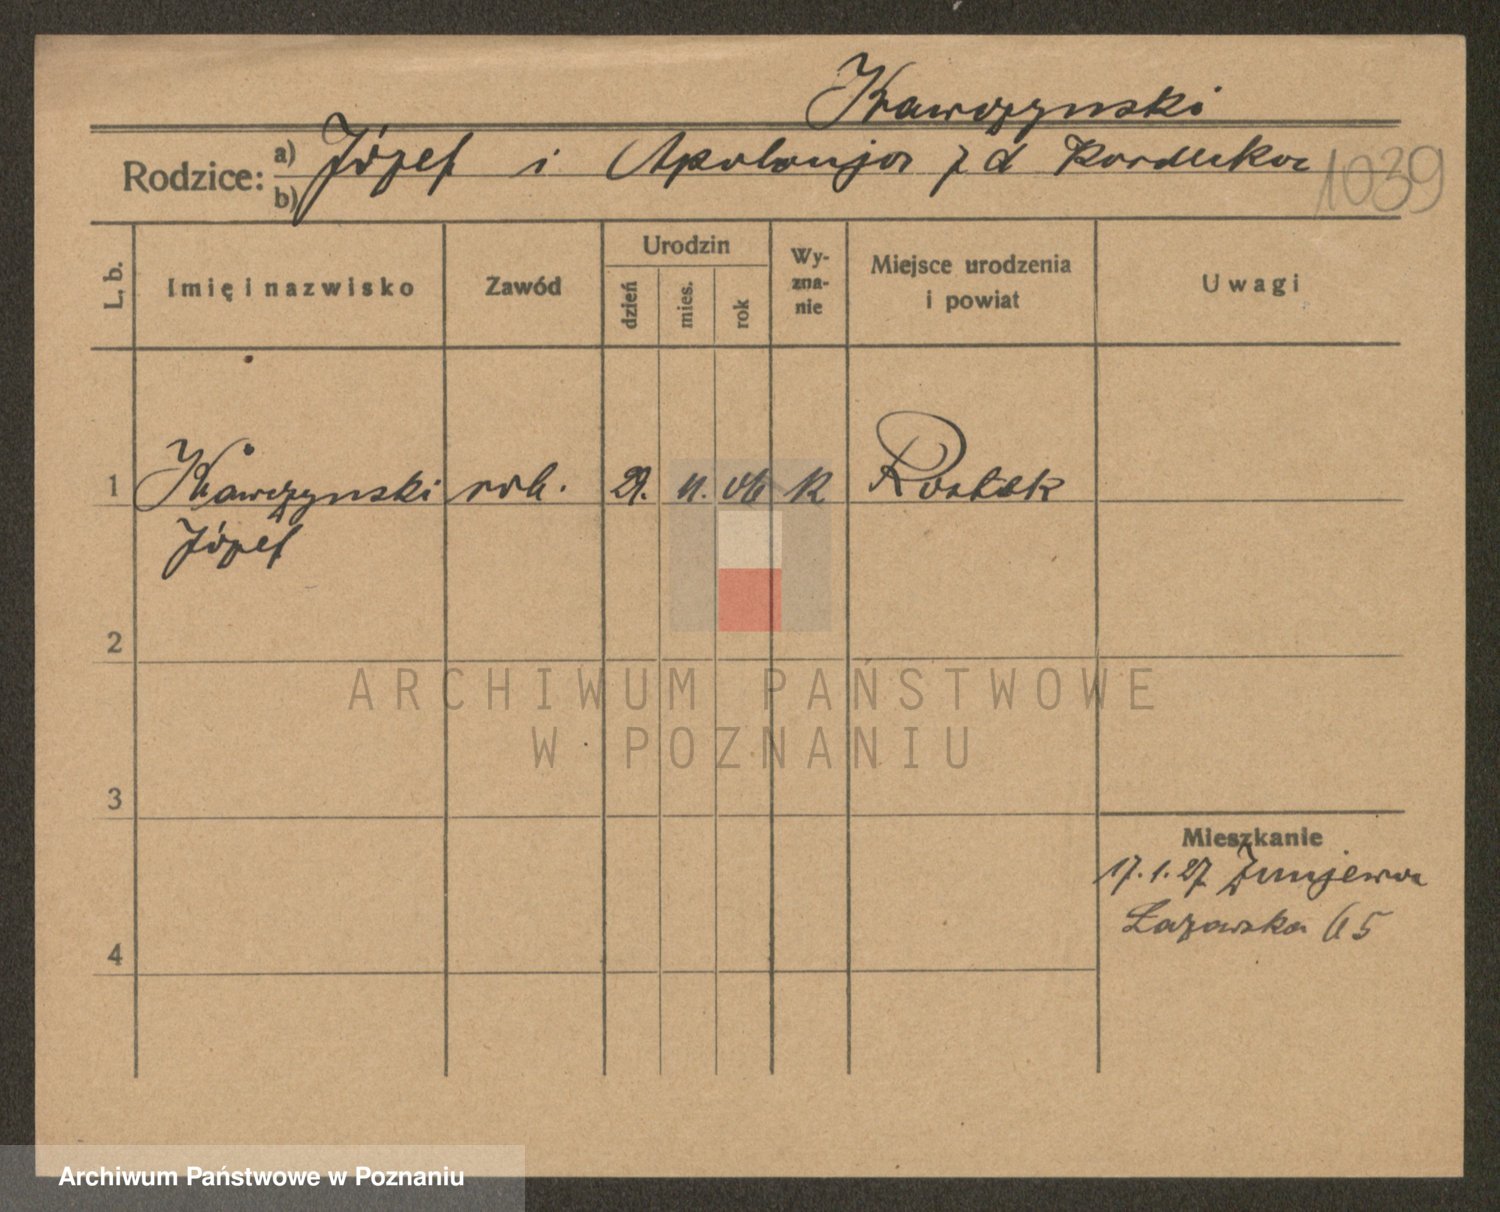 Krawczynski
Rodzice: a) b) Józef i Apolonja z d Kordecka 1039
L. b. Imię i nazwisko Zawód Urodzin dzień mies. rok Wyzna-nie Miejsce urodzenia i powiat Uwagi
1 Krawczynski rob. 29. 11. 06 K
Józef
2
ARCHIWUM PAŃSTWOWE
W POZNANIU
3
Mieszkanie
17.1.27 Żunjewo
Łazarska 65
4
Archiwum Państwowe w Poznaniu